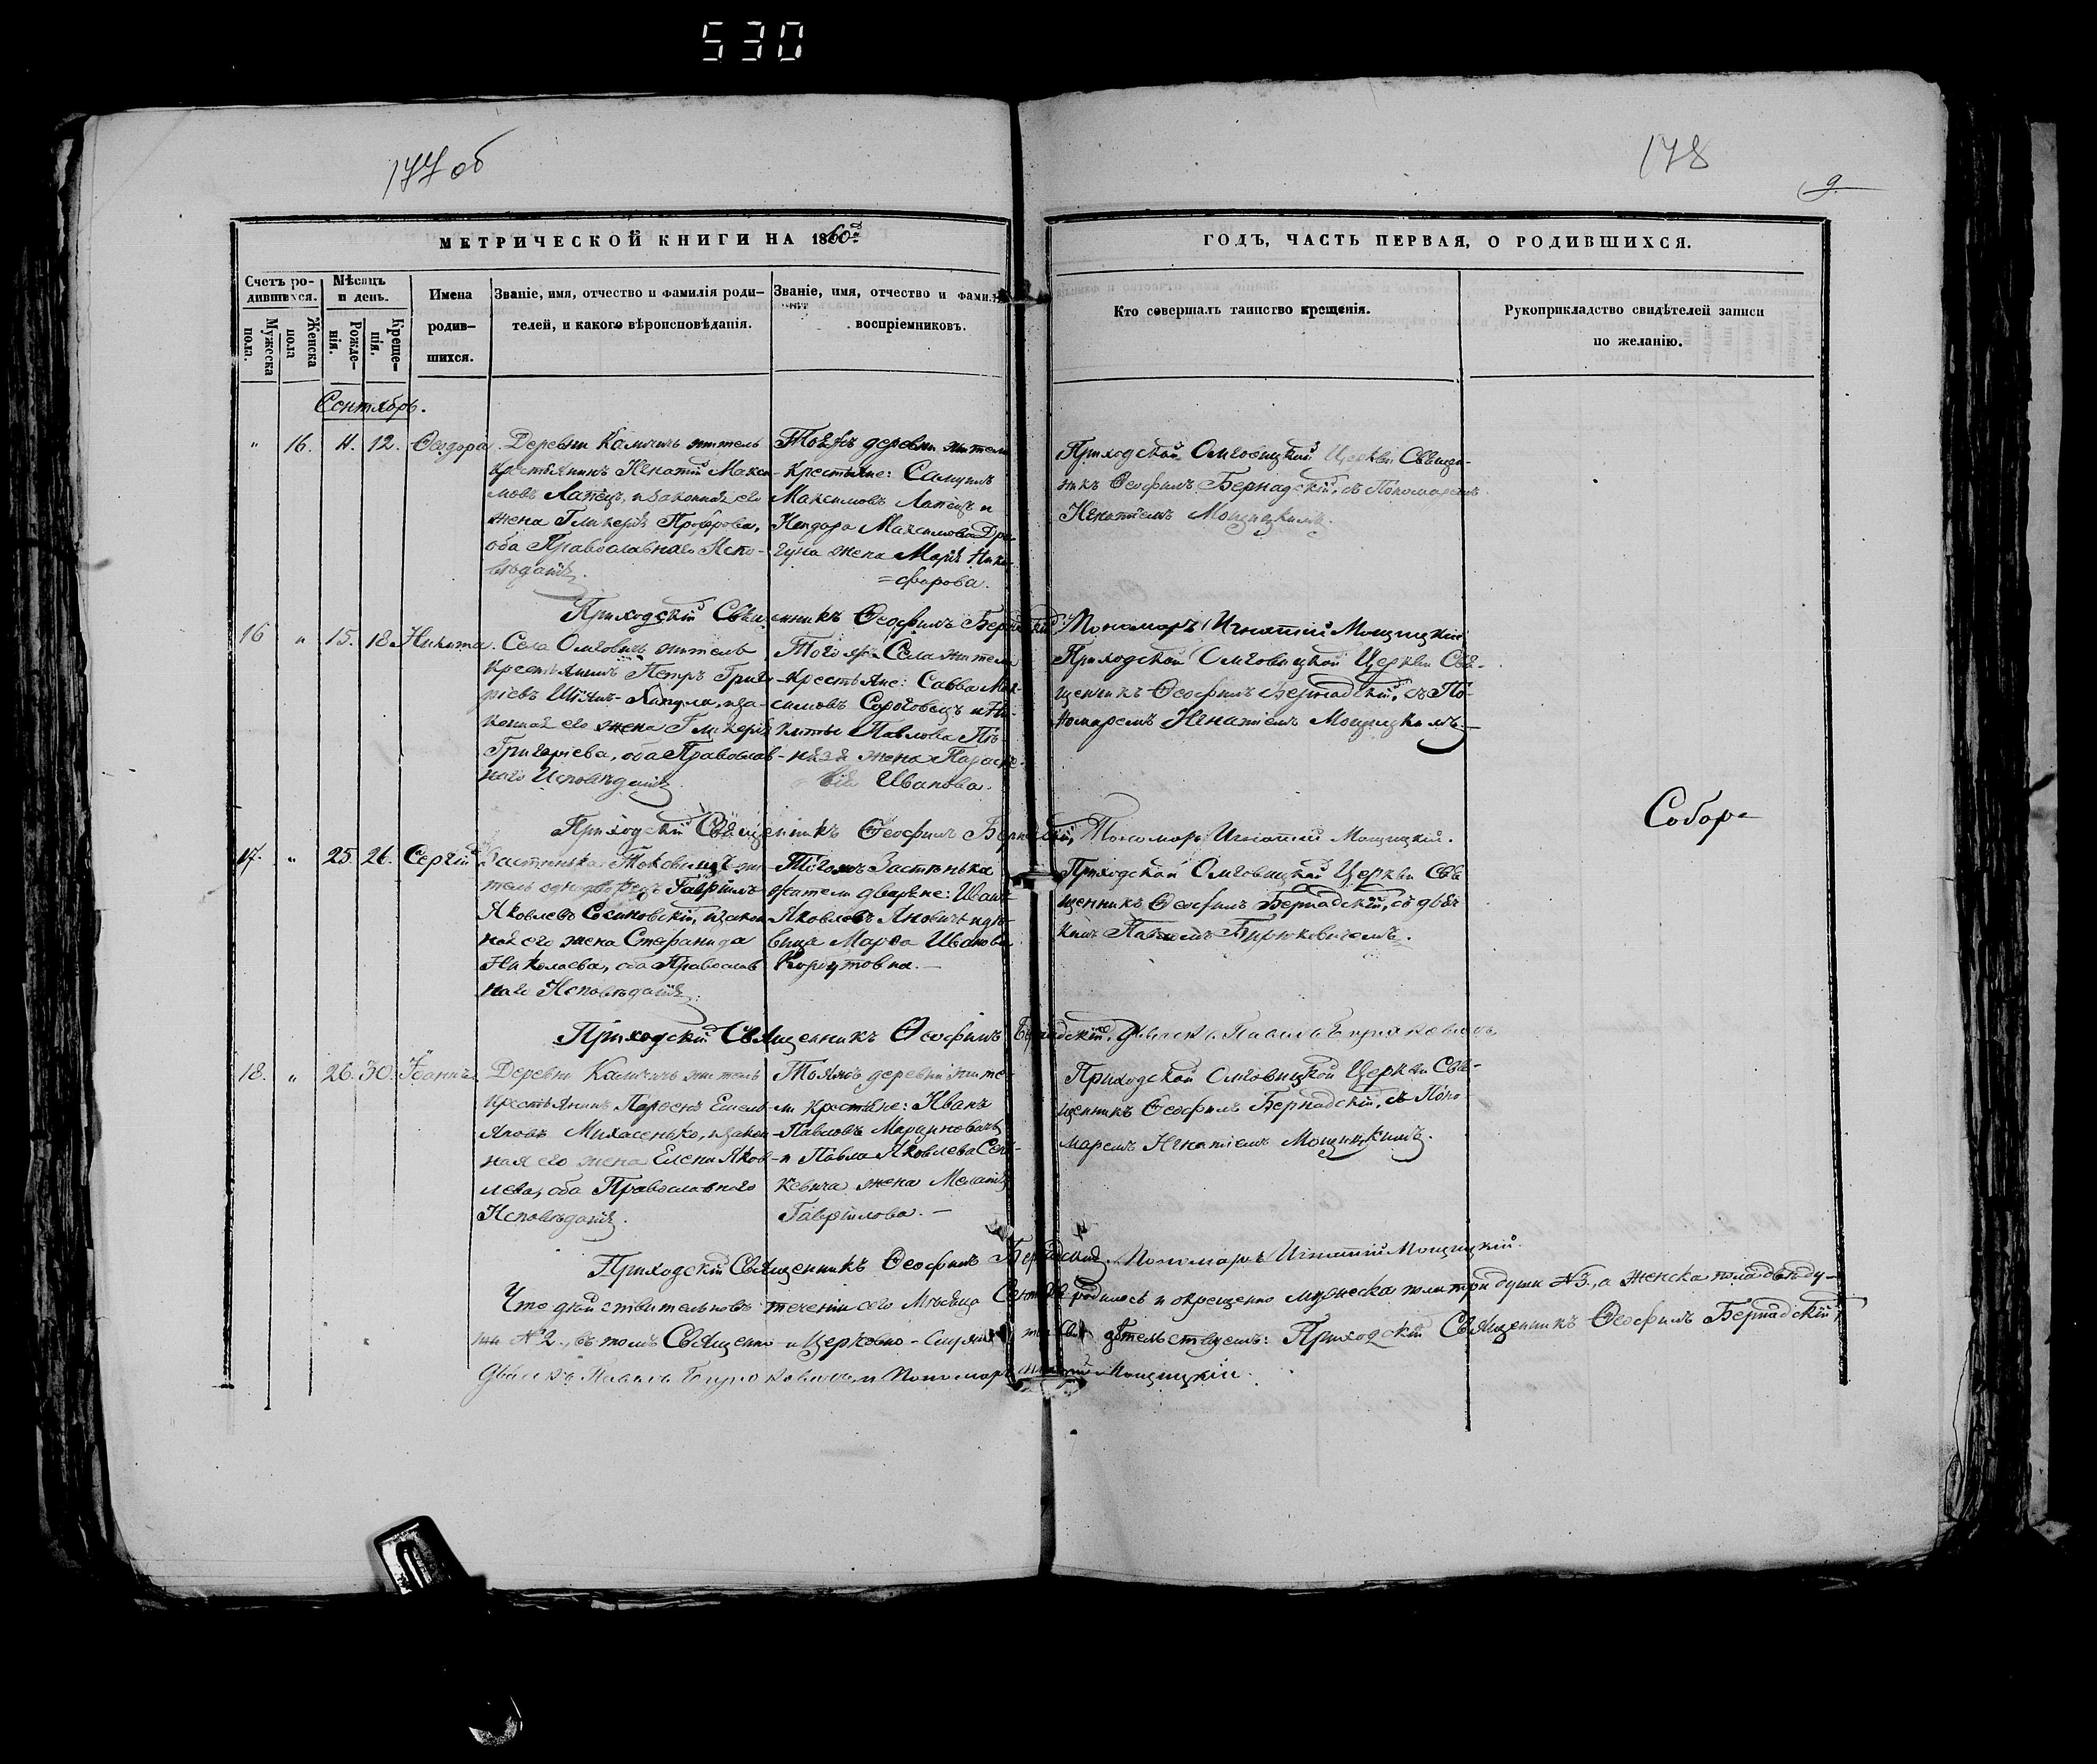 530
177 об
178
9
МЕТРИЧЕСКОЙ КНИГИ НА 1860й
ГОДЪ, ЧАСТЬ ПЕРВАЯ, О РОДИВШИХСЯ.
Счетъ родившихся.
Мужеска пола.
Женска пола
Мѣсяцъ и день.
Рожденія.
Крещенія.
Имена родившихся.
Званіе, имя, отчество и фамилія родителей, и какого вѣроисповѣданія.
Званіе, имя, отчество и фамилія
воспріемниковъ.
Кто совершалъ таинство крещенія.
Рукоприкладство свидѣтелей записи
по желанію.
Сентябрь.
" 16. 4. 12. Ѳеодора
Деревни Каличъ житель
крестьянинъ Игнатій Макси-
мовъ Лапецъ, и законная его
жена Гликерія
оба Православнаго Испо-
вѣданія.
Тояжъ деревни жители
Крестьяне: Самуилъ
Максимовъ Лапецъ и
Максимова Дра-
гуна жена Марія Ники-
=форова.
Приходской Омговицкой Церкви Священ-
никъ Ѳеофилъ Бернадскій, съ Пономаремъ
Игнатіемъ Мощицкимъ.
Приходскій Священникъ Ѳеофилъ Бернадскій, Пономарь Игнатій Мощицкій
16 " 15. 18. Никита.
Села Омговичъ житель
Крестьянинъ Петръ Григо-
ріевъ и за-
конная его жена Гликерія
Григоріева, оба Православ-
наго Исповѣданія.
Того жъ Села жители
Крестьяне: Савва Мак-
симовъ и Ни-
киты Павлова
жена Параске-
вія Иванова.
Приходской Омговицкой Церкви Свя-
щенникъ Ѳеофилъ Бернадскій, съ По-
номаремъ Игнатіемъ Мощицкимъ.
Приходскій Священникъ Ѳеофилъ Бернадскій, Пономарь Игнатій Мощицкій.
Соборъ
17. " 25. 26. Сергій
Застѣнька жи-
тель однодворецъ Гавріилъ
Яковлевъ и закон-
ная его жена Стефанида
Николаева, оба Православ
наго Исповѣданія.
Тогожъ Застѣнька
жители дворяне: Иванъ
Яковлевъ Яновичъ и дѣ-
вица Марѳа Иванова
Корбутовна.
Приходской Омговицкой Церкви Свя
щенникъ Ѳеофилъ Бернадскій, съ дья
комъ Павломъ Бирюковичемъ.
Приходскій Священникъ Ѳеофилъ Бернадскій, Павелъ Бирюковичъ
18. " 26. 30. Іоаннъ
Деревни Каличъ житель
Крестьянинъ Парѳенъ Емель
яновъ Михасенько, и закон-
ная его жена Елена Яков-
лева, оба Православнаго
Исповѣданія.
Тояжъ деревни жите-
ли Крестьяне: Иванъ
Павловъ Марциновичъ
и Павла Яковлева Сень-
кевича жена Меланія
Гавріилова.
Приходской Омговицкой Церкви Свя-
щенникъ Ѳеофилъ Бернадскій, съ Поно-
маремъ Игнатіемъ Мощицкимъ.
Приходскій Священникъ Ѳеофилъ Бернадскій. Пономарь Игнатій Мощицкій.
Что дѣйствительно въ теченіи сего Мѣсяца Сентября родилось и окрещено мужеска пола три души №3., а женска пола двѣ ду-
ши №2., въ томъ Священно-и Церковно-Служители свидѣтельствуемъ: Приходскій Священникъ Ѳеофилъ Бернадскій,
Павелъ Бирюковичъ, и Пономарь Игнатій Мощицкій.